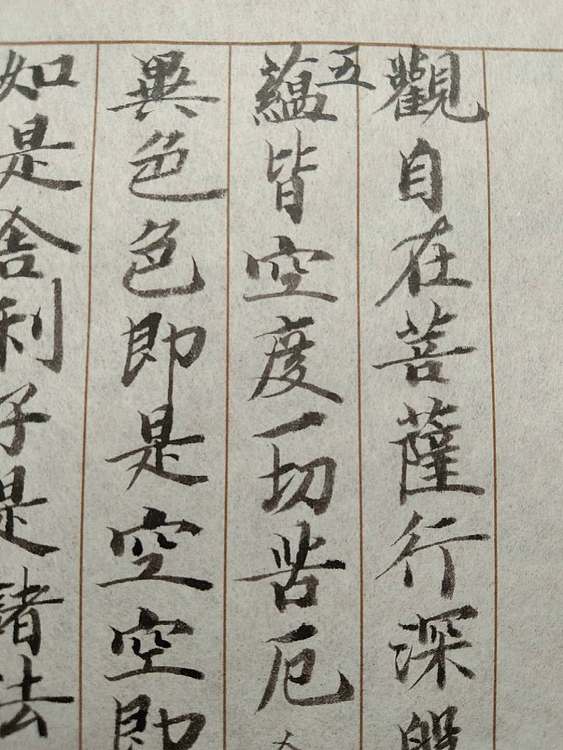 觀自在菩薩行深
五蘊皆空度一切苦厄
異色色即是空空即
如是舍利子是諸法